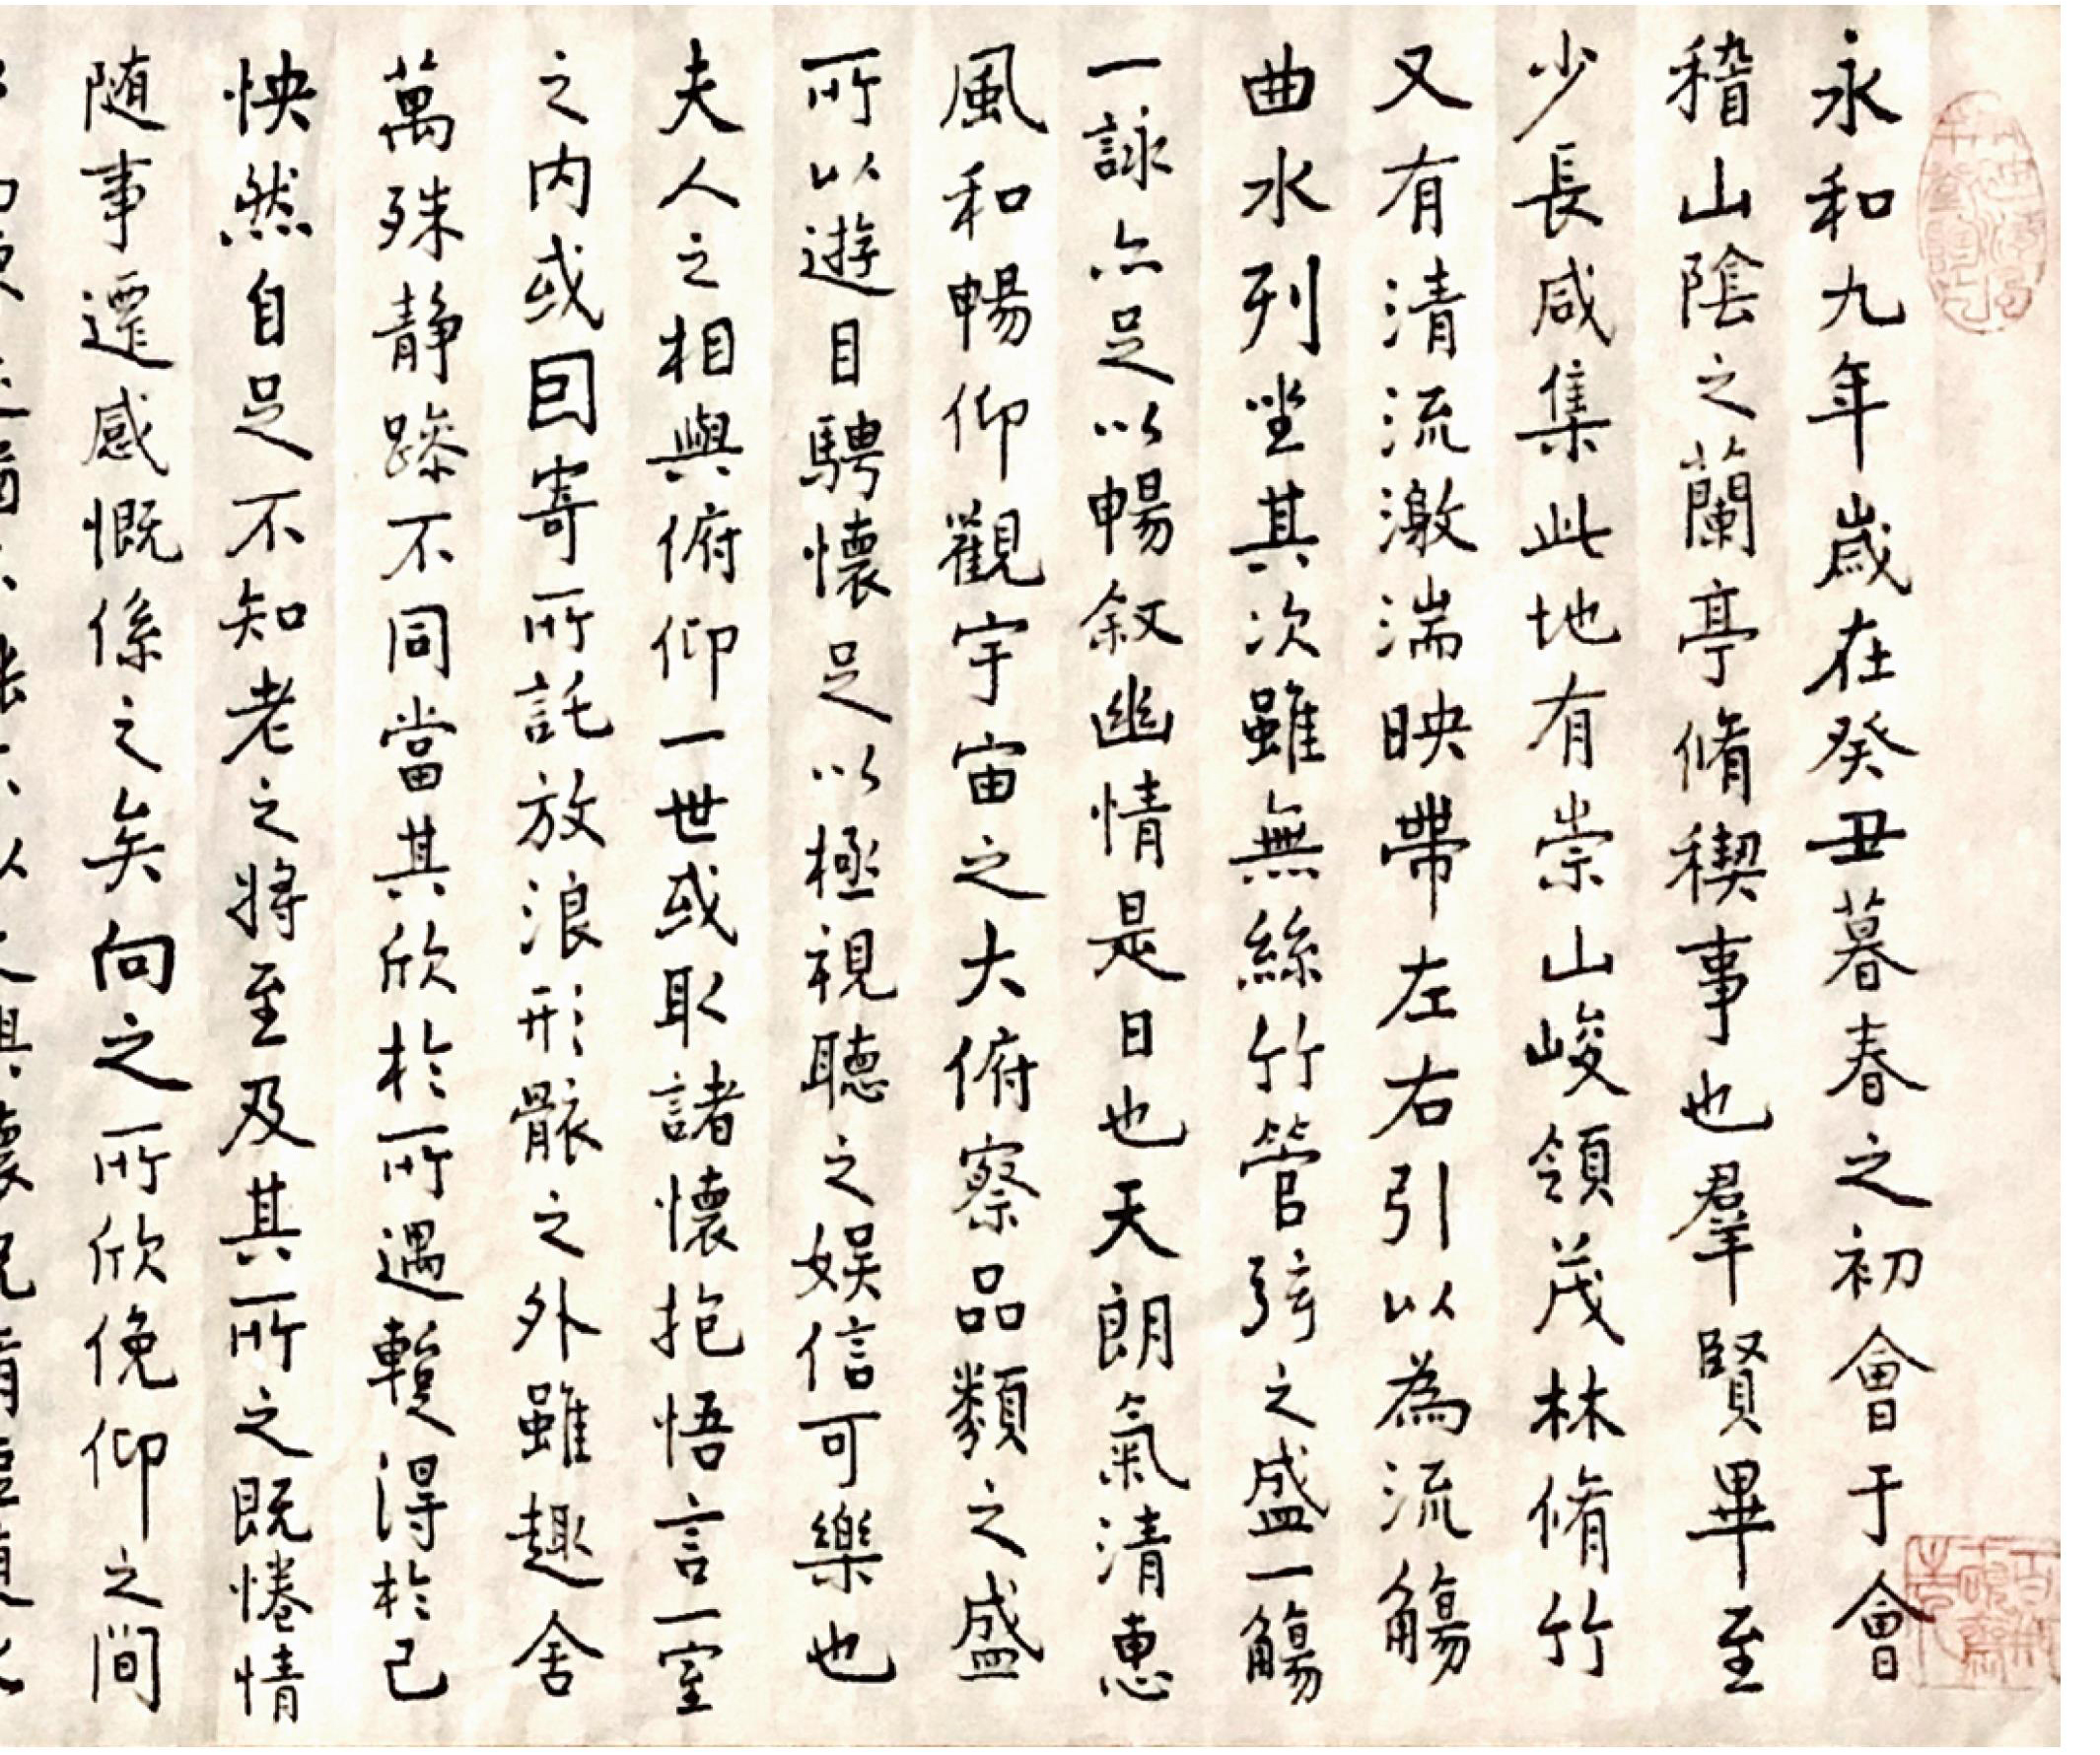 永和九年歲在癸丑暮春之初會于會
稽山陰之蘭亭脩稧事也羣賢畢至
少長咸集此地有崇山峻領茂林脩竹
又有清流激湍映帶左右引以為流觴
曲水列坐其次雖無絲竹管弦之盛一觴
一詠亦足以暢敘幽情是日也天朗氣清惠
風和暢仰觀宇宙之大俯察品類之盛
所以遊目騁懷足以極視聽之娛信可樂也
夫人之相與俯仰一世或取諸懷抱悟言一室
之内或因寄所託放浪形骸之外雖趣舍
萬殊静躁不同當其欣於所遇暫得於己
怏然自足不知老之將至及其所之既惓情
随事遷感慨係之矣向之所欣俛仰之間